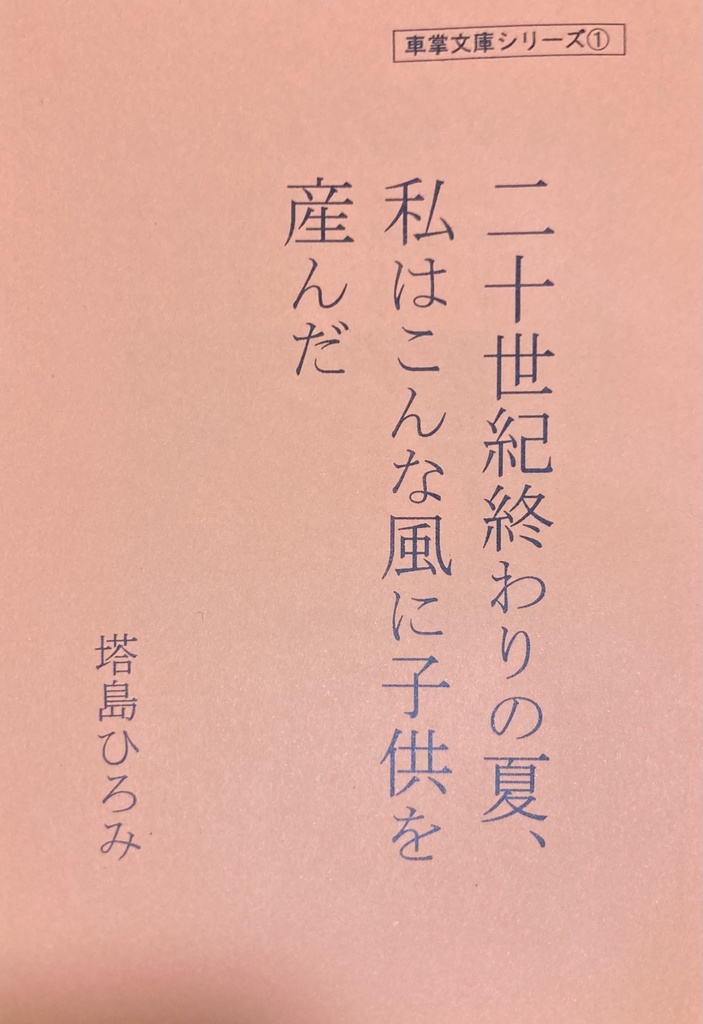 車掌文庫シリーズ①
二十世紀終わりの夏、
私はこんな風に子供を
産んだ
塔島ひろみ